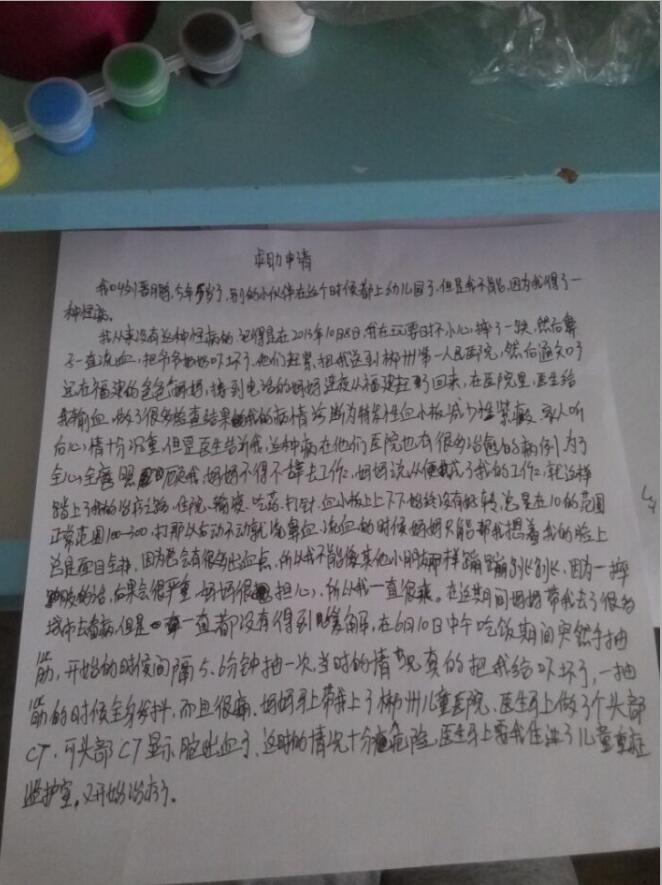 求助申请
我叫刘 ,今年5岁了,别的小伙伴在这个时候都上幼儿园了,但是我不能,因为我得了一
种怪病。
我从来没有这种怪病的,记得是在2013年10月8日,我在玩耍时不小心摔了一跤,然后鼻
子一直流血,把爷爷奶奶吓坏了,他们赶紧把我送到郴州第一人民医院,然后通知了
远在福建的爸爸妈妈,接到电话的妈妈连夜从福建赶了回来,在医院里,医生给
我输血,做了很多检查结果我的病情诊断为特发性血小板减少性紫癜,家人听
后心情十分沉重,但是医生告诉我,这种病在他们医院也有很多治愈的病例为了
全心全意照顾我,妈妈不得不辞去工作,妈妈说从便成了我的工作,就这样
踏上了我的治疗之路,住院、输液、吃药、打针,血小板上上下下始终没有好转,总是在10的范围
正常范围100-300,打那以后动不动就流鼻血,流血的时候妈妈只能帮我捂着,我的脸上
总是面目全非,因为总会有很多出血点,所以我不能像其他小朋友那样蹦蹦跳跳,因为一摔
跤的话,后果会很严重,妈妈很担心,所以我一直很乖。在这期间妈妈带我去了很多
城市去看病,但是一直都没有得到缓解,在6月10日中午吃饭期间突然手抽
筋,开始的时候间隔5、6分钟抽一次,当时的情况真的把我给吓坏了,一抽
筋的时候全身发抖,而且很痛,妈妈马上带我上了郴州儿童医院,医生马上做了个头部
CT,可头部CT显示脑出血了,这时的情况十分危险,医生马上要我住进了儿童重症
监护室,又开始治疗了。